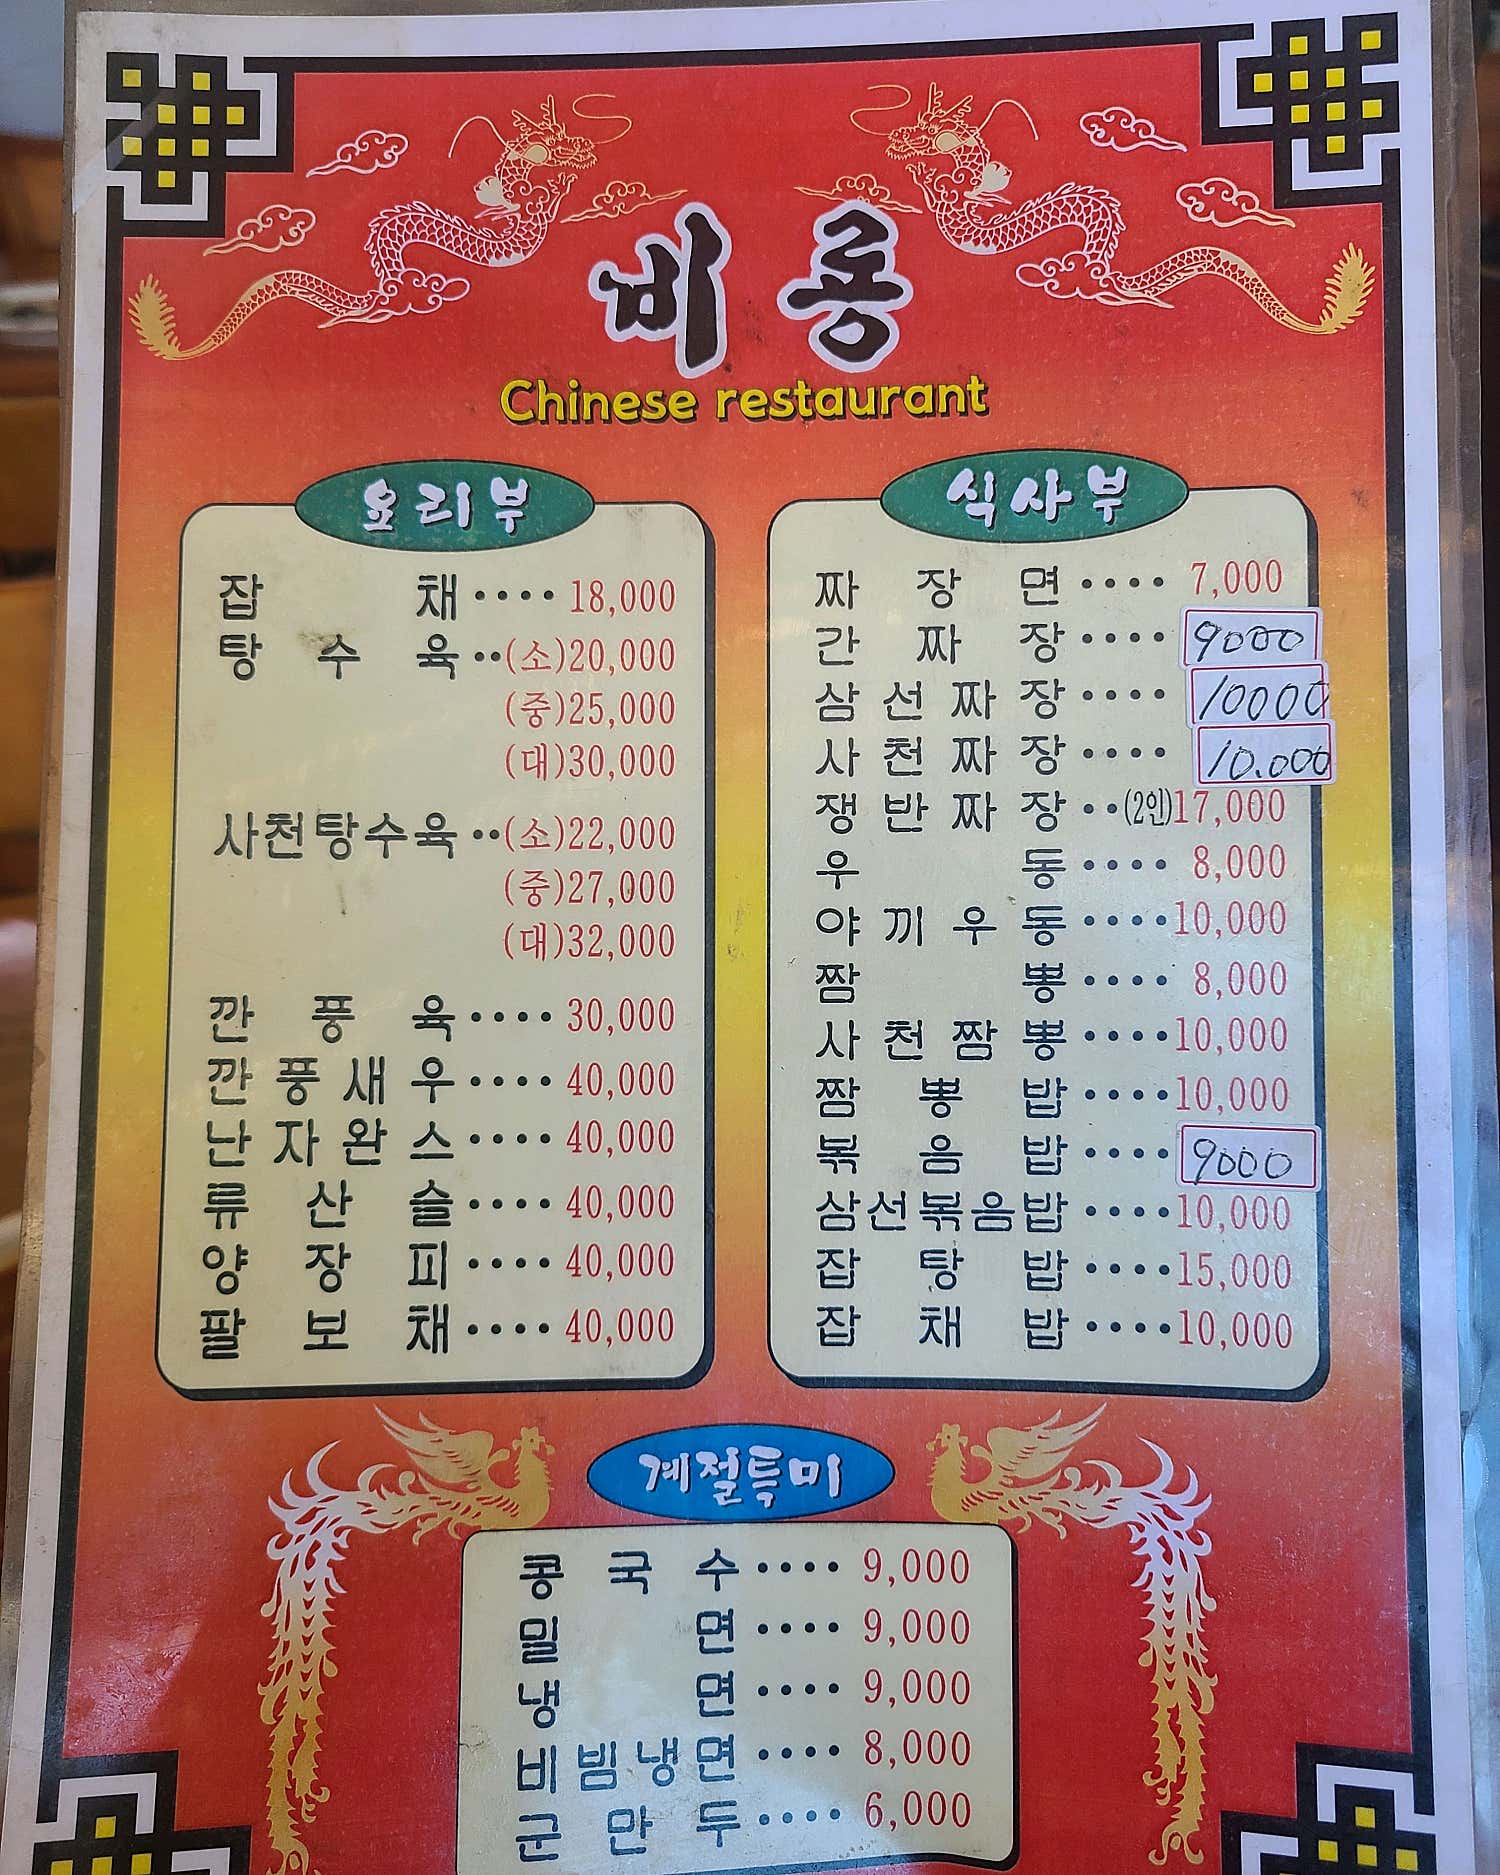 비룡
Chinese restaurant
요리부
잡채···· 18,000
탕수육··(소)20,000
(중)25,000
(대)30,000
사천탕수육··(소)22,000
(중)27,000
(대)32,000
깐풍육···· 30,000
깐풍새우···· 40,000
난자완스···· 40,000
류산슬···· 40,000
양장피···· 40,000
팔보채···· 40,000
식사부
짜장면···· 7,000
간짜장···· 9000
삼선짜장···· 10000
사천짜장···· 10.000
쟁반짜장··(2인)17,000
우동···· 8,000
야끼우동····10,000
짬뽕···· 8,000
사천짬뽕····10,000
짬뽕밥····10,000
볶음밥···· 9000
삼선볶음밥····10,000
잡탕밥····15,000
잡채밥····10,000
계절특미
콩국수···· 9,000
밀면···· 9,000
냉면···· 9,000
비빔냉면···· 8,000
군만두···· 6,000